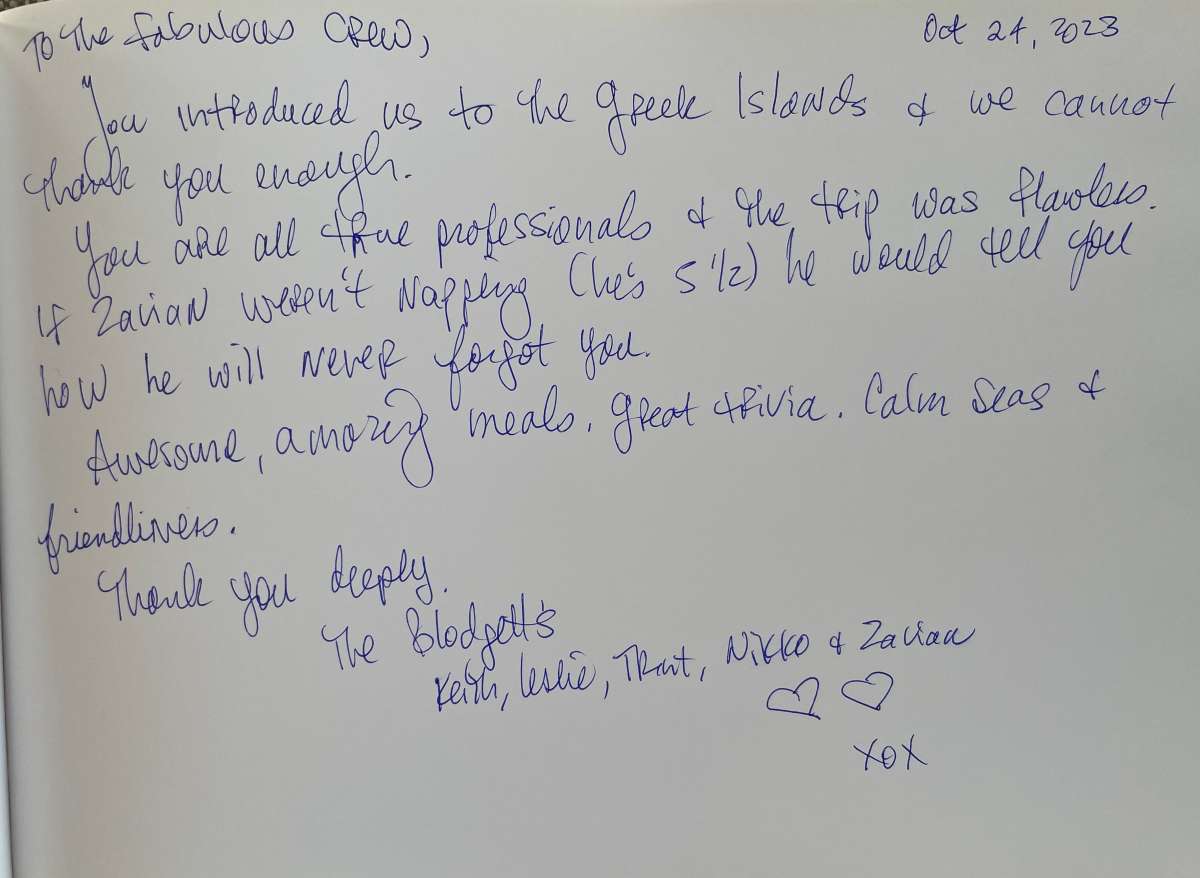 To The fabulous Crew,
Oct 24, 2023
You introduced us to the Greek Islands & we cannot
thank you enough.
You are all true professionals & the trip was flawless.
If Zavian weren't napping (he's 5 1/2) he would tell you
how he will never forgot you.
Awesome, amazing meals, great trivia. Calm seas &
friendliness.
Thank you deeply.
The Blodgett's
Keith, Leslie, Trent, Nikko & Zavian
xox